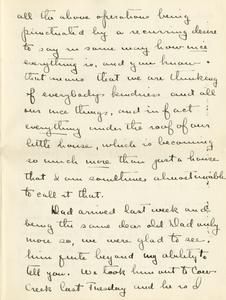 all the above operations being
punctuated by a recurring desire
to say in some way how nice
everything is, and you know
that means that we are thinking
of everybody's kindness and all
our nice things, and in fact
everything under the roof of our
little house, which is becoming
so much more than just a house
that I am sometimes almost unable
to call it that.
Dad arrived last week and
being the same dear old Dad only
more so, we were glad to see
him quite beyond my ability to
tell you. We took him out to Cow
Creek last Tuesday and he is a